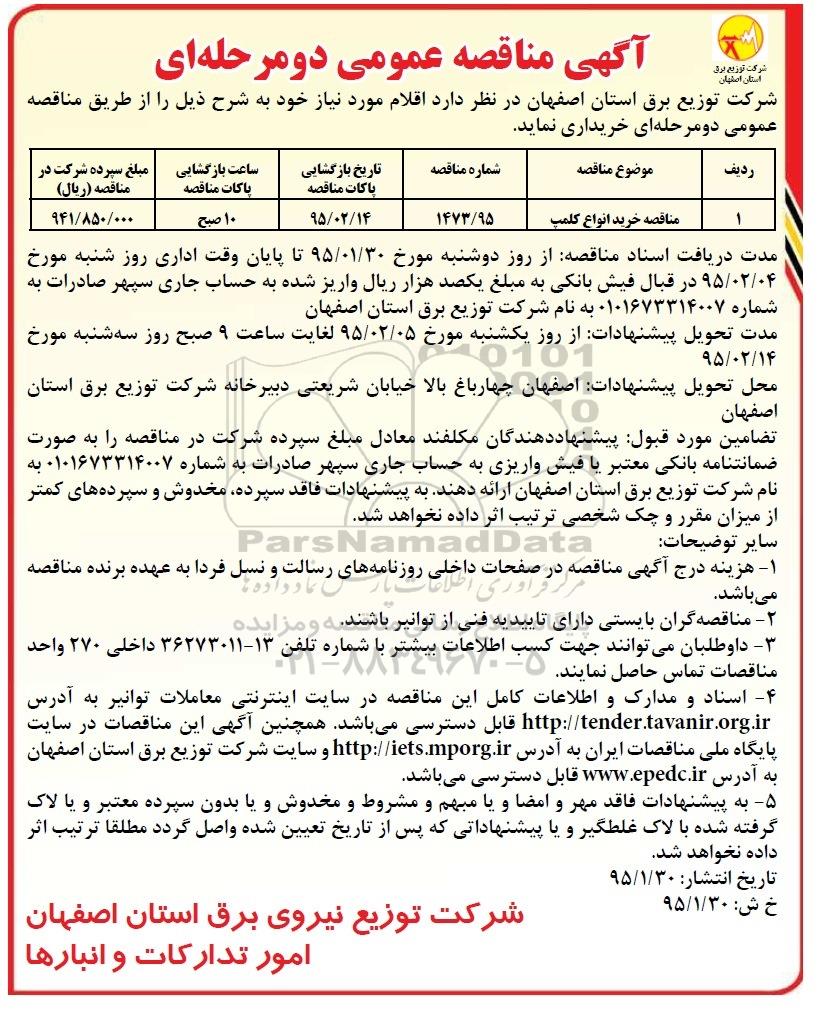 شرکت توزیع برق
استان اصفهان
آگهی مناقصه عمومی دومرحله‌ای
شرکت توزیع برق استان اصفهان در نظر دارد اقلام مورد نیاز خود به شرح ذیل را از طریق مناقصه
عمومی دومرحله‌ای خریداری نماید.
ردیف	موضوع مناقصه	شماره مناقصه	تاریخ بازگشایی پاکات مناقصه	ساعت بازگشایی پاکات مناقصه	مبلغ سپرده شرکت در مناقصه (ریال)
۱	مناقصه خرید انواع کلمپ	۱۴۷۳/۹۵	۹۵/۰۲/۱۴	۱۰ صبح	۹۴۱/۸۵۰/۰۰۰
مدت دریافت اسناد مناقصه: از روز دوشنبه مورخ ۹۵/۰۱/۳۰ تا پایان وقت اداری روز شنبه مورخ
۹۵/۰۲/۰۴ در قبال فیش بانکی به مبلغ یکصد هزار ریال واریز شده به حساب جاری سپهر صادرات به
شماره ۰۱۰۱۶۷۳۳۱۴۰۰۷ به نام شرکت توزیع برق استان اصفهان
مدت تحویل پیشنهادات: از روز یکشنبه مورخ ۹۵/۰۲/۰۵ لغایت ساعت ۹ صبح روز سه‌شنبه مورخ
۹۵/۰۲/۱۴
محل تحویل پیشنهادات: اصفهان چهارباغ بالا خیابان شریعتی دبیرخانه شرکت توزیع برق استان
اصفهان
تضامین مورد قبول: پیشنهاددهندگان مکلفند معادل مبلغ سپرده شرکت در مناقصه را به صورت
ضمانتنامه بانکی معتبر یا فیش واریزی به حساب جاری سپهر صادرات به شماره ۰۱۰۱۶۷۳۳۱۴۰۰۷ به
نام شرکت توزیع برق استان اصفهان ارائه دهند. به پیشنهادات فاقد سپرده، مخدوش و سپرده‌های کمتر
از میزان مقرر و چک شخصی ترتیب اثر داده نخواهد شد.
ParsNamadData
سایر توضیحات:
۱- هزینه درج آگهی مناقصه در صفحات داخلی روزنامه‌های رسالت و نسل فردا به عهده برنده مناقصه
می‌باشد.
مرکز فرآوری اطلاعات پارس نماد داده ها
۲- مناقصه‌گران بایستی دارای تاییدیه فنی از توانیر باشند.
پایگاه اطلاع رسانی مناقصه و مزایده
۳- داوطلبان می‌توانند جهت کسب اطلاعات بیشتر با شماره تلفن ۱۳-۳۶۲۷۳۰۱۱ داخلی ۲۷۰ واحد
مناقصات تماس حاصل نمایند.
۰۲۱-۸۸۳۴۹۶۷۰-۵
۴- اسناد و مدارک و اطلاعات کامل این مناقصه در سایت اینترنتی معاملات توانیر به آدرس
http://tender.tavanir.org.ir قابل دسترسی می‌باشد. همچنین آگهی این مناقصات در سایت
پایگاه ملی مناقصات ایران به آدرس http://iets.mporg.ir و سایت شرکت توزیع برق استان اصفهان
به آدرس www.epedc.ir قابل دسترسی می‌باشد.
۵- به پیشنهادات فاقد مهر و امضا و یا مبهم و مشروط و مخدوش و یا بدون سپرده معتبر و یا لاک
گرفته شده با لاک غلطگیر و یا پیشنهاداتی که پس از تاریخ تعیین شده واصل گردد مطلقا ترتیب اثر
داده نخواهد شد.
تاریخ انتشار: ۹۵/۱/۳۰
خ ش: ۹۵/۱/۳۰
شرکت توزیع نیروی برق استان اصفهان
امور تدارکات و انبارها